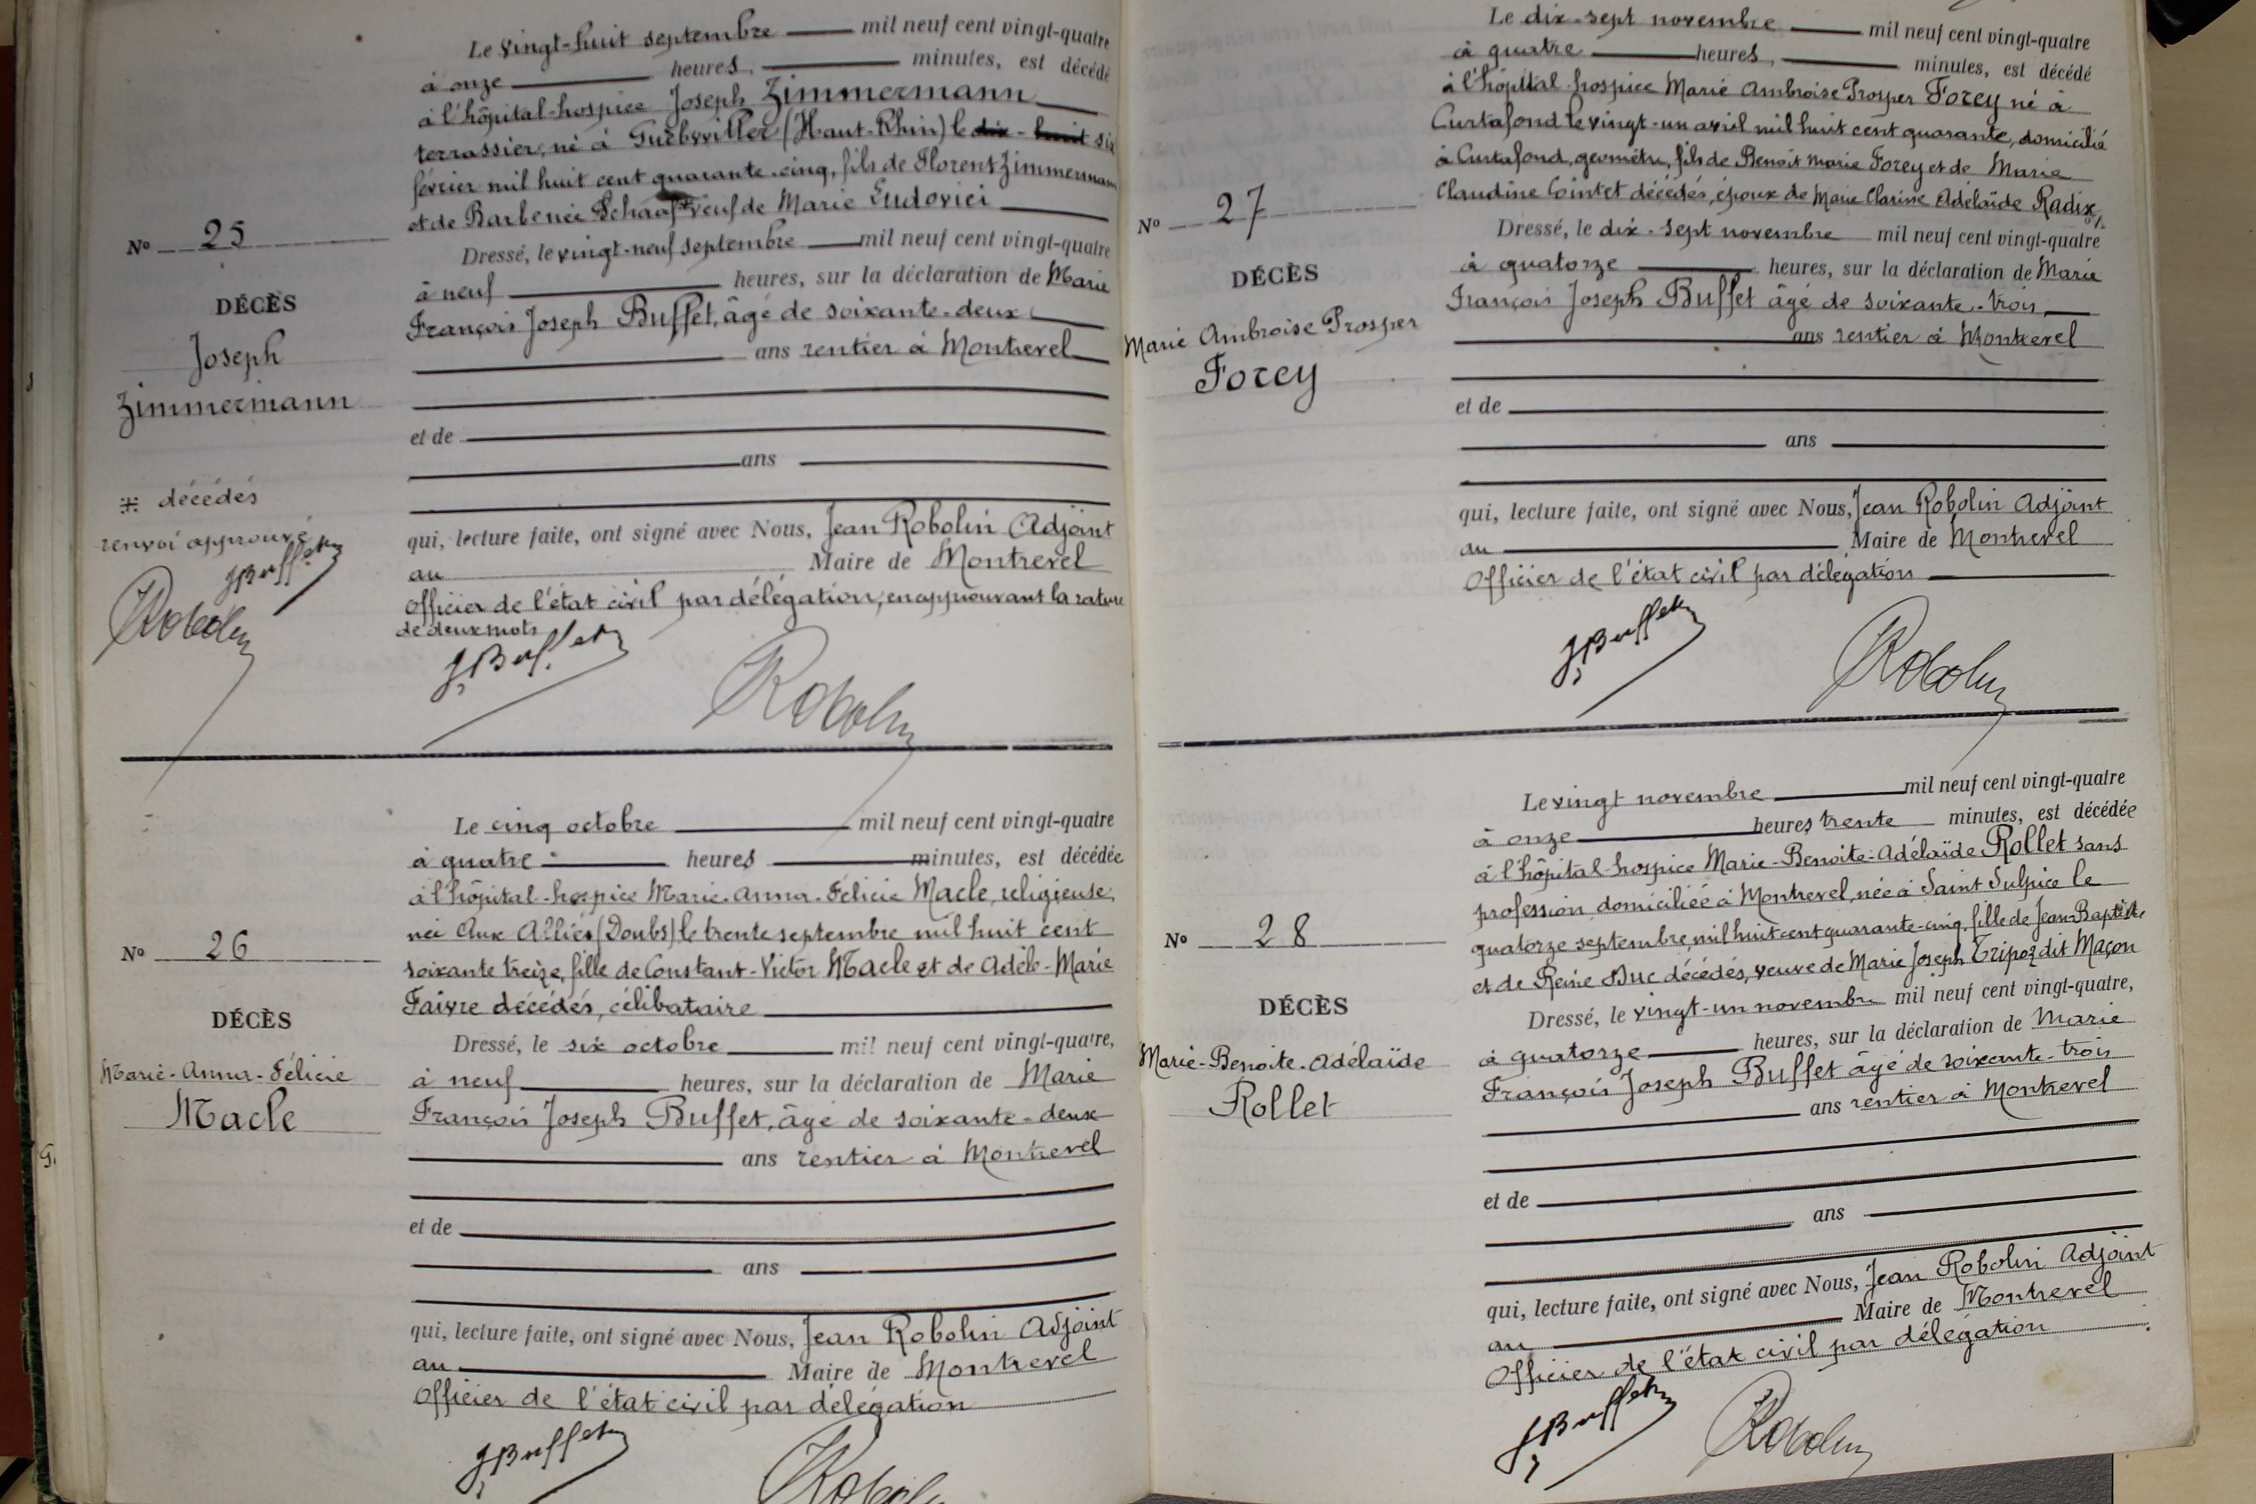 Le vingt-huit septembre mil neuf cent vingt-quatre
à onze heures, minutes, est décédé
à l'hôpital-hospice Joseph Zimmermann
terrassier, né à Guebwiller (Haut-Rhin) le dix-huit six
février mil huit cent quarante-cinq, fils de Florent Zimmermann
et de Barbe née Schaaf * veuf de Marie Ludovici
No 25
Dressé, le vingt-neuf septembre mil neuf cent vingt-quatre
à neuf heures, sur la déclaration de Marie
DÉCÈS
François Joseph Buffet, âgé de soixante-deux
Joseph
ans rentier à Montrevel
Zimmermann
et de
ans
* décédés
renvoi approuvé
JBuffet
Robolin
qui, lecture faite, ont signé avec Nous, Jean Robolin Adjoint
au Maire de Montrevel
Officier de l'état civil par délégation, en approuvant la rature
de deux mots
JBuffet
Robolin
Le cinq octobre mil neuf cent vingt-quatre
à quatre heures minutes, est décédée
à l'hôpital-hospice Marie-Anna-Félicie Macle, religieuse,
née Aux Alliés (Doubs) le trente septembre mil huit cent
No 26
soixante treize, fille de Constant-Victor Macle et de Adèle-Marie
Faivre décédés, célibataire
DÉCÈS
Dressé, le six octobre mil neuf cent vingt-quatre,
Marie-Anna-Félicie
à neuf heures, sur la déclaration de Marie
Macle
François Joseph Buffet, âgé de soixante-deux
ans rentier à Montrevel
et de
ans
qui, lecture faite, ont signé avec Nous, Jean Robolin Adjoint
au Maire de Montrevel
Officier de l'état civil par délégation
JBuffet
Robolin
Le dix-sept novembre mil neuf cent vingt-quatre
à quatre heures, minutes, est décédé
à l'hôpital-hospice Marie Ambroise Prosper Forey né à
Curtafond le vingt-un avril mil huit cent quarante, domicilié
à Curtafond, géomètre, fils de Benoît Marie Forey et de Marie
Claudine Cointet décédés, époux de Marie Clarisse Adélaïde Radix
No 27
Dressé, le dix-sept novembre mil neuf cent vingt-quatre
à quatorze heures, sur la déclaration de Marie
DÉCÈS
François Joseph Buffet âgé de soixante-trois
Marie Ambroise Prosper
ans rentier à Montrevel
Forey
et de
ans
qui, lecture faite, ont signé avec Nous, Jean Robolin Adjoint
au Maire de Montrevel
Officier de l'état civil par délégation
JBuffet
Robolin
Le vingt novembre mil neuf cent vingt-quatre
à onze heures trente minutes, est décédée
à l'hôpital-hospice Marie-Benoite-Adélaïde Rollet sans
profession domiciliée à Montrevel, née à Saint Sulpice le
quatorze septembre mil huit cent quarante-cinq, fille de Jean-Baptiste
No 28
et de Reine Duc décédés, veuve de Marie Joseph Tripoz dit Maçon
DÉCÈS
Dressé, le vingt-un novembre mil neuf cent vingt-quatre,
à quatorze heures, sur la déclaration de Marie
Marie-Benoite-Adélaïde
François Joseph Buffet âgé de soixante-trois
Rollet
ans rentier à Montrevel
et de
ans
qui, lecture faite, ont signé avec Nous, Jean Robolin Adjoint
au Maire de Montrevel
Officier de l'état civil par délégation
JBuffet
Robolin